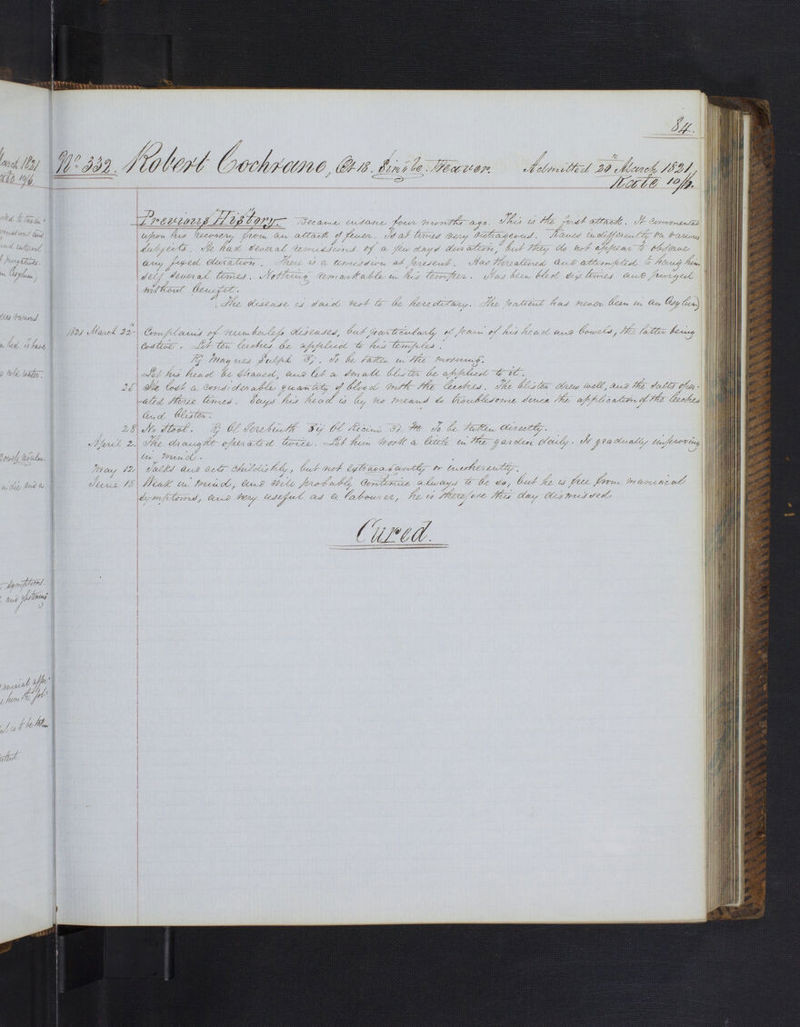 84.
No. 332. Robert Cochrane, Æt 18. Single. Weaver. Admitted 20th March 1821
Rate 10/6.
Previous History. Became insane four months ago. This is the first attack. It commenced
upon his recovery from an attack of fever. Is at times very outrageous. Raves indifferently on various
subjects. He had several remissions of a few days duration, but they do not appear to observe
any fixed duration. There is a remission at present. Has threatened and attempted to hang him
self several times. Nothing remarkable in his temper. Has been bled six times and purged
without benefit.
The disease is said not to be hereditary. The patient has never been in an Asylum,
1821 March 22d Complains of numberless diseases, but particularly of pain of his head and bowels, the latter being
costive. Let ten leeches be applied to his temples.
℞ Magnes Sulph ℥j. To be taken in the morning.
Let his head be shaved, and let a small blister be applied to it.
26 He lost a considerable quantity of blood with the leeches. The blister drew well, and the salts oper-
ated three times. Says his head is by no means so troublesome since the application of the leeches
and blister.
28 No stool. ℞ Ol Terebinth Ol Ricini M. To be taken directly.
April 2. The draught operated twice. Let him work a little in the garden daily. Is gradually improving
in mind.
May 12. Talks and acts childishly, but not extravagantly or incoherently.
June 18 Weak in mind, and will probably continue always to be so, but he is free from maniacal
symptoms, and very useful as a labourer, he is therefore this day dismissed
Cured.